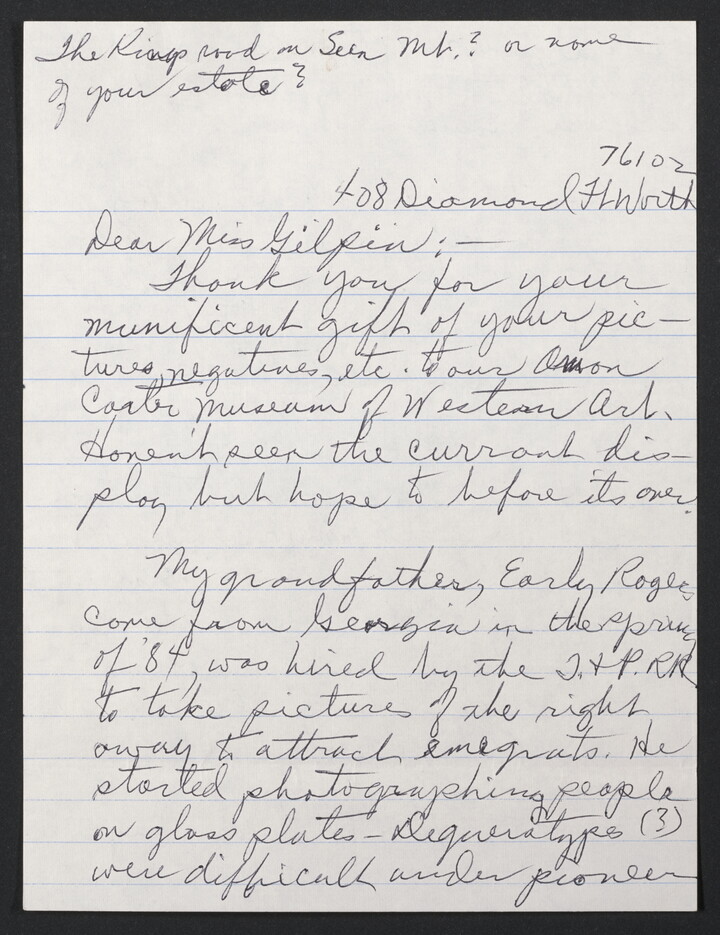 The Kings road on Seen Mt.? or name
of your estate?
76102
408 Diamond Ft Worth
Dear Miss Gilpin:—
Thank you for your
munificent gift of your pic-
tures, negatives, etc. to our Amon
Carter Museum of Western Art.
Haven't seen the currant dis-
play but hope to before its over.
My grandfather, Early Rogers
came from Georgia in the spring
of '84, was hired by the T.&P. RR
to take pictures of the right
away to attract emegrats. He
started photographing people
on glass plates - Degueratypes (?)
were difficult under pioneer